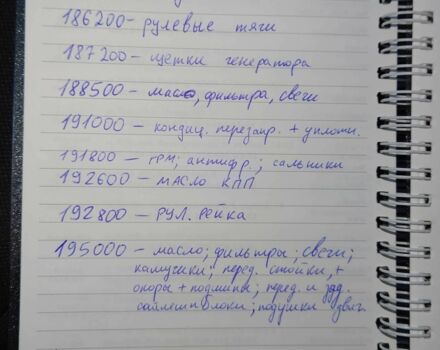 186200 - рулевые тяги
187200 - щетки генератора
188500 - масло, фильтра, свечи
191000 - кондиц. перезапр. + уплотн.
191800 - ГРМ; антифр.; сальники
192600 - МАСЛО КПП
192800 - РУЛ. РЕЙКА
195000 - масло; фильтры; свечи;
перед. стойки, +
опоры + подшипн; перед. и зад.
сайлентблоки; подушки двиг.